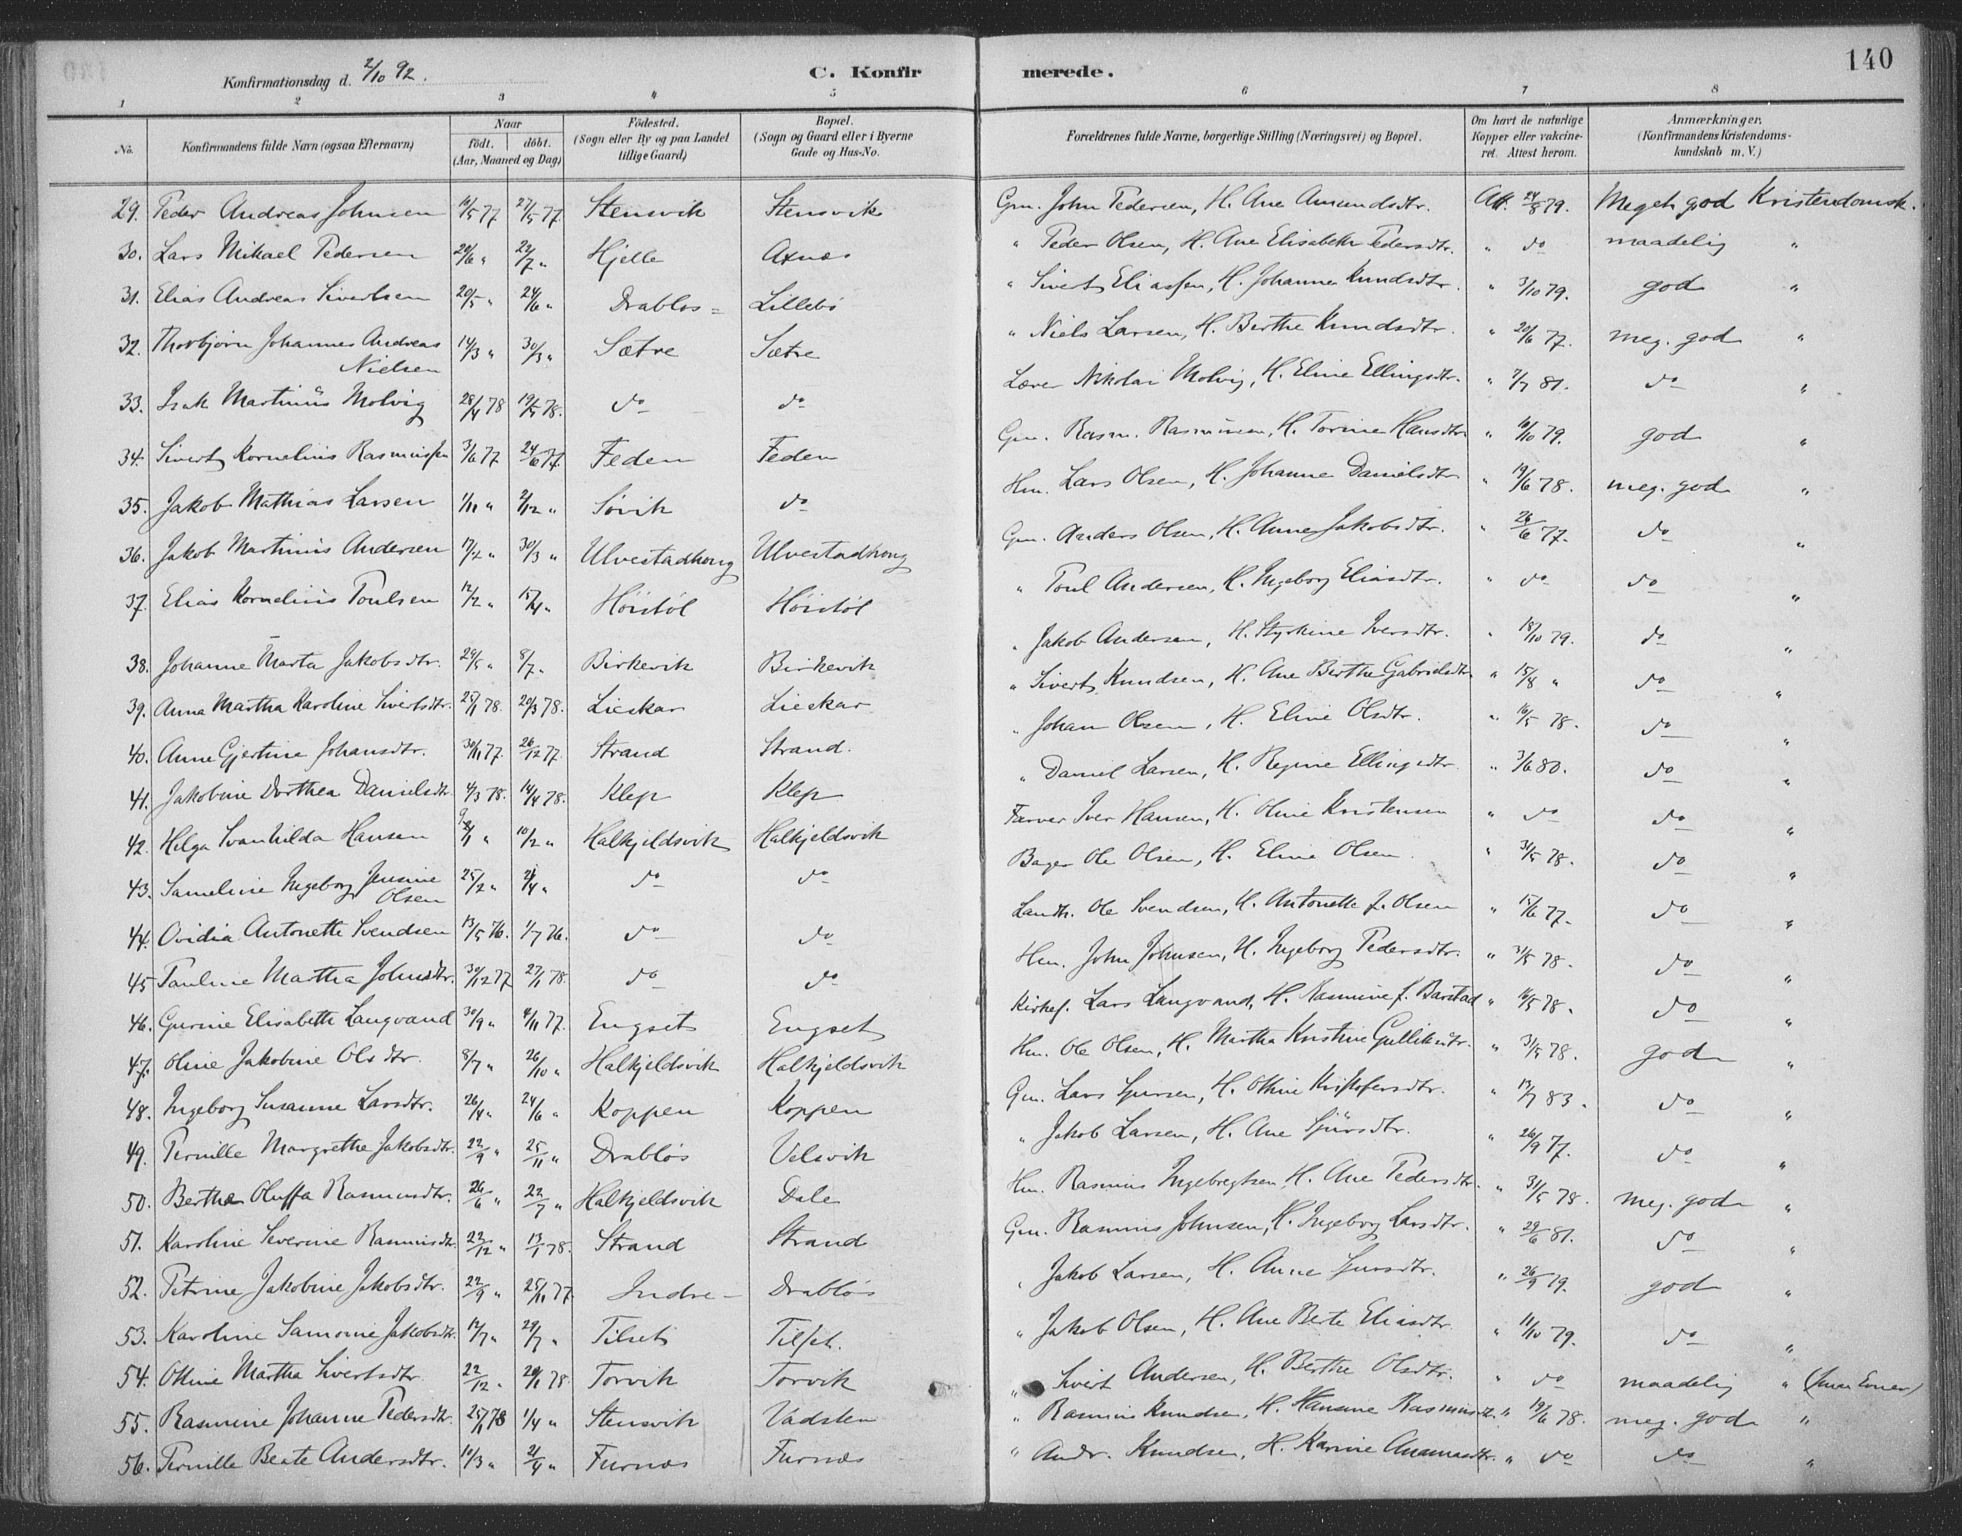 140
Konfirmationsdag d. 2/10 92.
C. Konfirmerede.
1 2 3 4 5 6 7 8
No. Konfirmandens fulde Navn (ogsaa Efternavn) Naar født. døbt. (Aar, Maaned og Dag) Fødested. (Sogn eller By og paa Landet tillige Gaard) Bopæl. (Sogn og Gaard eller i Byerne Gade og Hus-No. Forældrenes fulde Navne, borgerlige Stilling (Næringsvei) og Bopæl. Om havt de naturlige Kopper eller vakcineret. Attest herom. Anmærkninger. (Konfirmandens Kristendomskundskab m. V.)
29. Peder Andreas Johnsen 16/5 77 27/5 77. Stensvik Stensvik Gm. John Pedersen, H. Ane Amundsdtr. Att. 24/8 79. Meget god Kristendomsk.
30. Lars Mikael Pedersen 20/6 " 22/7 " Hjelle Axnes " Peder Olsen, H. Ane Elisabeth Pedersdtr. " do maadelig "
31. Elias Andreas Sivertsen 20/5 " 24/6 " Drabløs = Lillebø " Sivert Eliassen, H. Johanne Knudsdtr. " 3/10 79. god "
32. Thorbjørn Johannes Andreas Nielsen 14/3 " 30/3 " Sætre Sætre " Niels Larsen, H. Berthe Knudsdtr. " 20/6 77. meg. god "
33. Isak Martinus Molvig 28/4 78 19/5 78. do do Lærer Nikolai Molvig, H. Eline Ellingsdtr. " 7/7 81. do "
34. Sivert Kornelius Rasmussen 3/6 77 24/6 77. Feden Feden Gm. Rasm. Rasmussen, H. Torine Hansdtr. " 16/10 79. god "
35. Jakob Mathias Larsen 1/11 " 2/12 " Søvik do Hm. Lars Olsen, H. Johanne Danielsdtr " 19/6 78. meg. god "
36. Jakob Martinus Andersen 17/2 " 30/3 " Ulvestadhoug Ulvestadhoug Gm. Anders Olsen, H. Anne Jakobsdtr. " 26/6 77. do "
37. Elias Kornelius Poulsen 12/2 " 15/4 " Höistöl Höistöl " Poul Andersen, H. Ingeborg Eliasdtr. " do do "
38. Johanne Marta Jakobsdtr. 29/5 " 8/7 " Birkevik Birkevik " Jakob Andersen, H. Styrkine Iversdtr. " 18/10 79. do "
39. Anna Martha Karoline Sivertsdtr. 25/1 78. 20/3 78. Lieskar Lieskar " Sivert Knudsen, H. Ane Berthe Gabrielsdtr " 15/8 " do "
40. Anne Gjertine Johansdtr. 30/11 77. 26/12 77. Strand Strand. " Johan Olsen, H. Eline Olsdtr. " 16/5 78. do "
41. Jakobine Dorthea Danielsdtr. 4/3 78. 14/4 78. Klep Klep " Daniel Larsen, H. Regine Ellingsdtr. " 3/6 80. do "
42. Helga Svanhilda Hansen 9/1 " 10/2 " Halkjeldsvik Halkjeldsvik Farver Iver Hansen, H. Oline Kristensen " do do "
43. Sameline Ingeborg Jensine Olsen 25/2 " 21/4 " do do Bager Ole Olsen, H. Eline Olsen. " 31/5 78. do "
44. Ovidia Antonette Svendsen 13/5 76. 1/7 76. do do Landh. Ole Svendsen, H. Antonette f. Olsen " 15/6 77. do "
45 Pauline Martha Johnsdtr. 30/12 77 27/1 78. do do Hm. John Johnsen, H. Ingeborg Pedersdtr. " 31/5 78. do "
46. Gurine Elisabeth Langvand 30/9 " 4/11 77. Engset Engset Kirkes. Lars Langvand, H. Rasmine f. Barstad " 16/5 78. do "
47. Oline Jakobine Olsdtr. 8/7 " 26/10 " Halkjeldsvik Halkjeldsvik Hm. Ole Olsen, H. Martha Kristine Gulliksdtr. " 31/5 78. god "
48. Ingeborg Susanne Larsdtr. 26/4 " 24/6 " Koppen Koppen Gm. Lars Sjursen, H. Othine Kristofersdtr. " 13/7 83. do "
49. Pernille Margrethe Jakobsdtr. 22/9 " 25/11 " Drabløs Velsvik " Jakob Larsen, H. Ane Sjursdtr. " 26/9 77. do "
50. Berthe Oluffa Rasmusdtr. 26/6 " 22/7 " Halkjeldsvik Dale Hm. Rasmus Ingebregtsen, H. Ane Pedersdtr. " 31/5 78. meg. god "
51. Karoline Severine Rasmusdtr. 22/12 " 13/1 78. Strand Strand Gm. Rasmus Johnsen, H. Ingeborg Larsdtr. " 29/6 81. do "
52. Petrine Jakobine Jakobsdtr. 22/9 " 25/11 77. Indre - Drabløs " Jakob Larsen, H. Anne Sjursdtr. " 26/9 79. god "
53. Karoline Samonie Jakobsdtr. 14/7 " 29/7 " Tilset Tilset. " Jakob Olsen, H. Ane Berte Eliasdtr. " 11/10 79. do "
54. Othine Martha Sivertsdtr. 22/12 " 20/1 78. Torvik Torvik " Sivert Andersen, H. Berthe Olsdtr. " do maadelig " (smaa Evner)
55. Rasmine Johanne Pedersdtr. 25/1 78 1/4 " Stensvik Vadsten " Rasmus Knudsen, H. Hansine Rasmusdtr. " 19/6 78. meg. god "
56. Pernille Beate Andersdtr. 10/3 " 21/4 " Furnæs Furnæs " Andr. Knudsen, H. Karine Asmundsdtr. " do do "